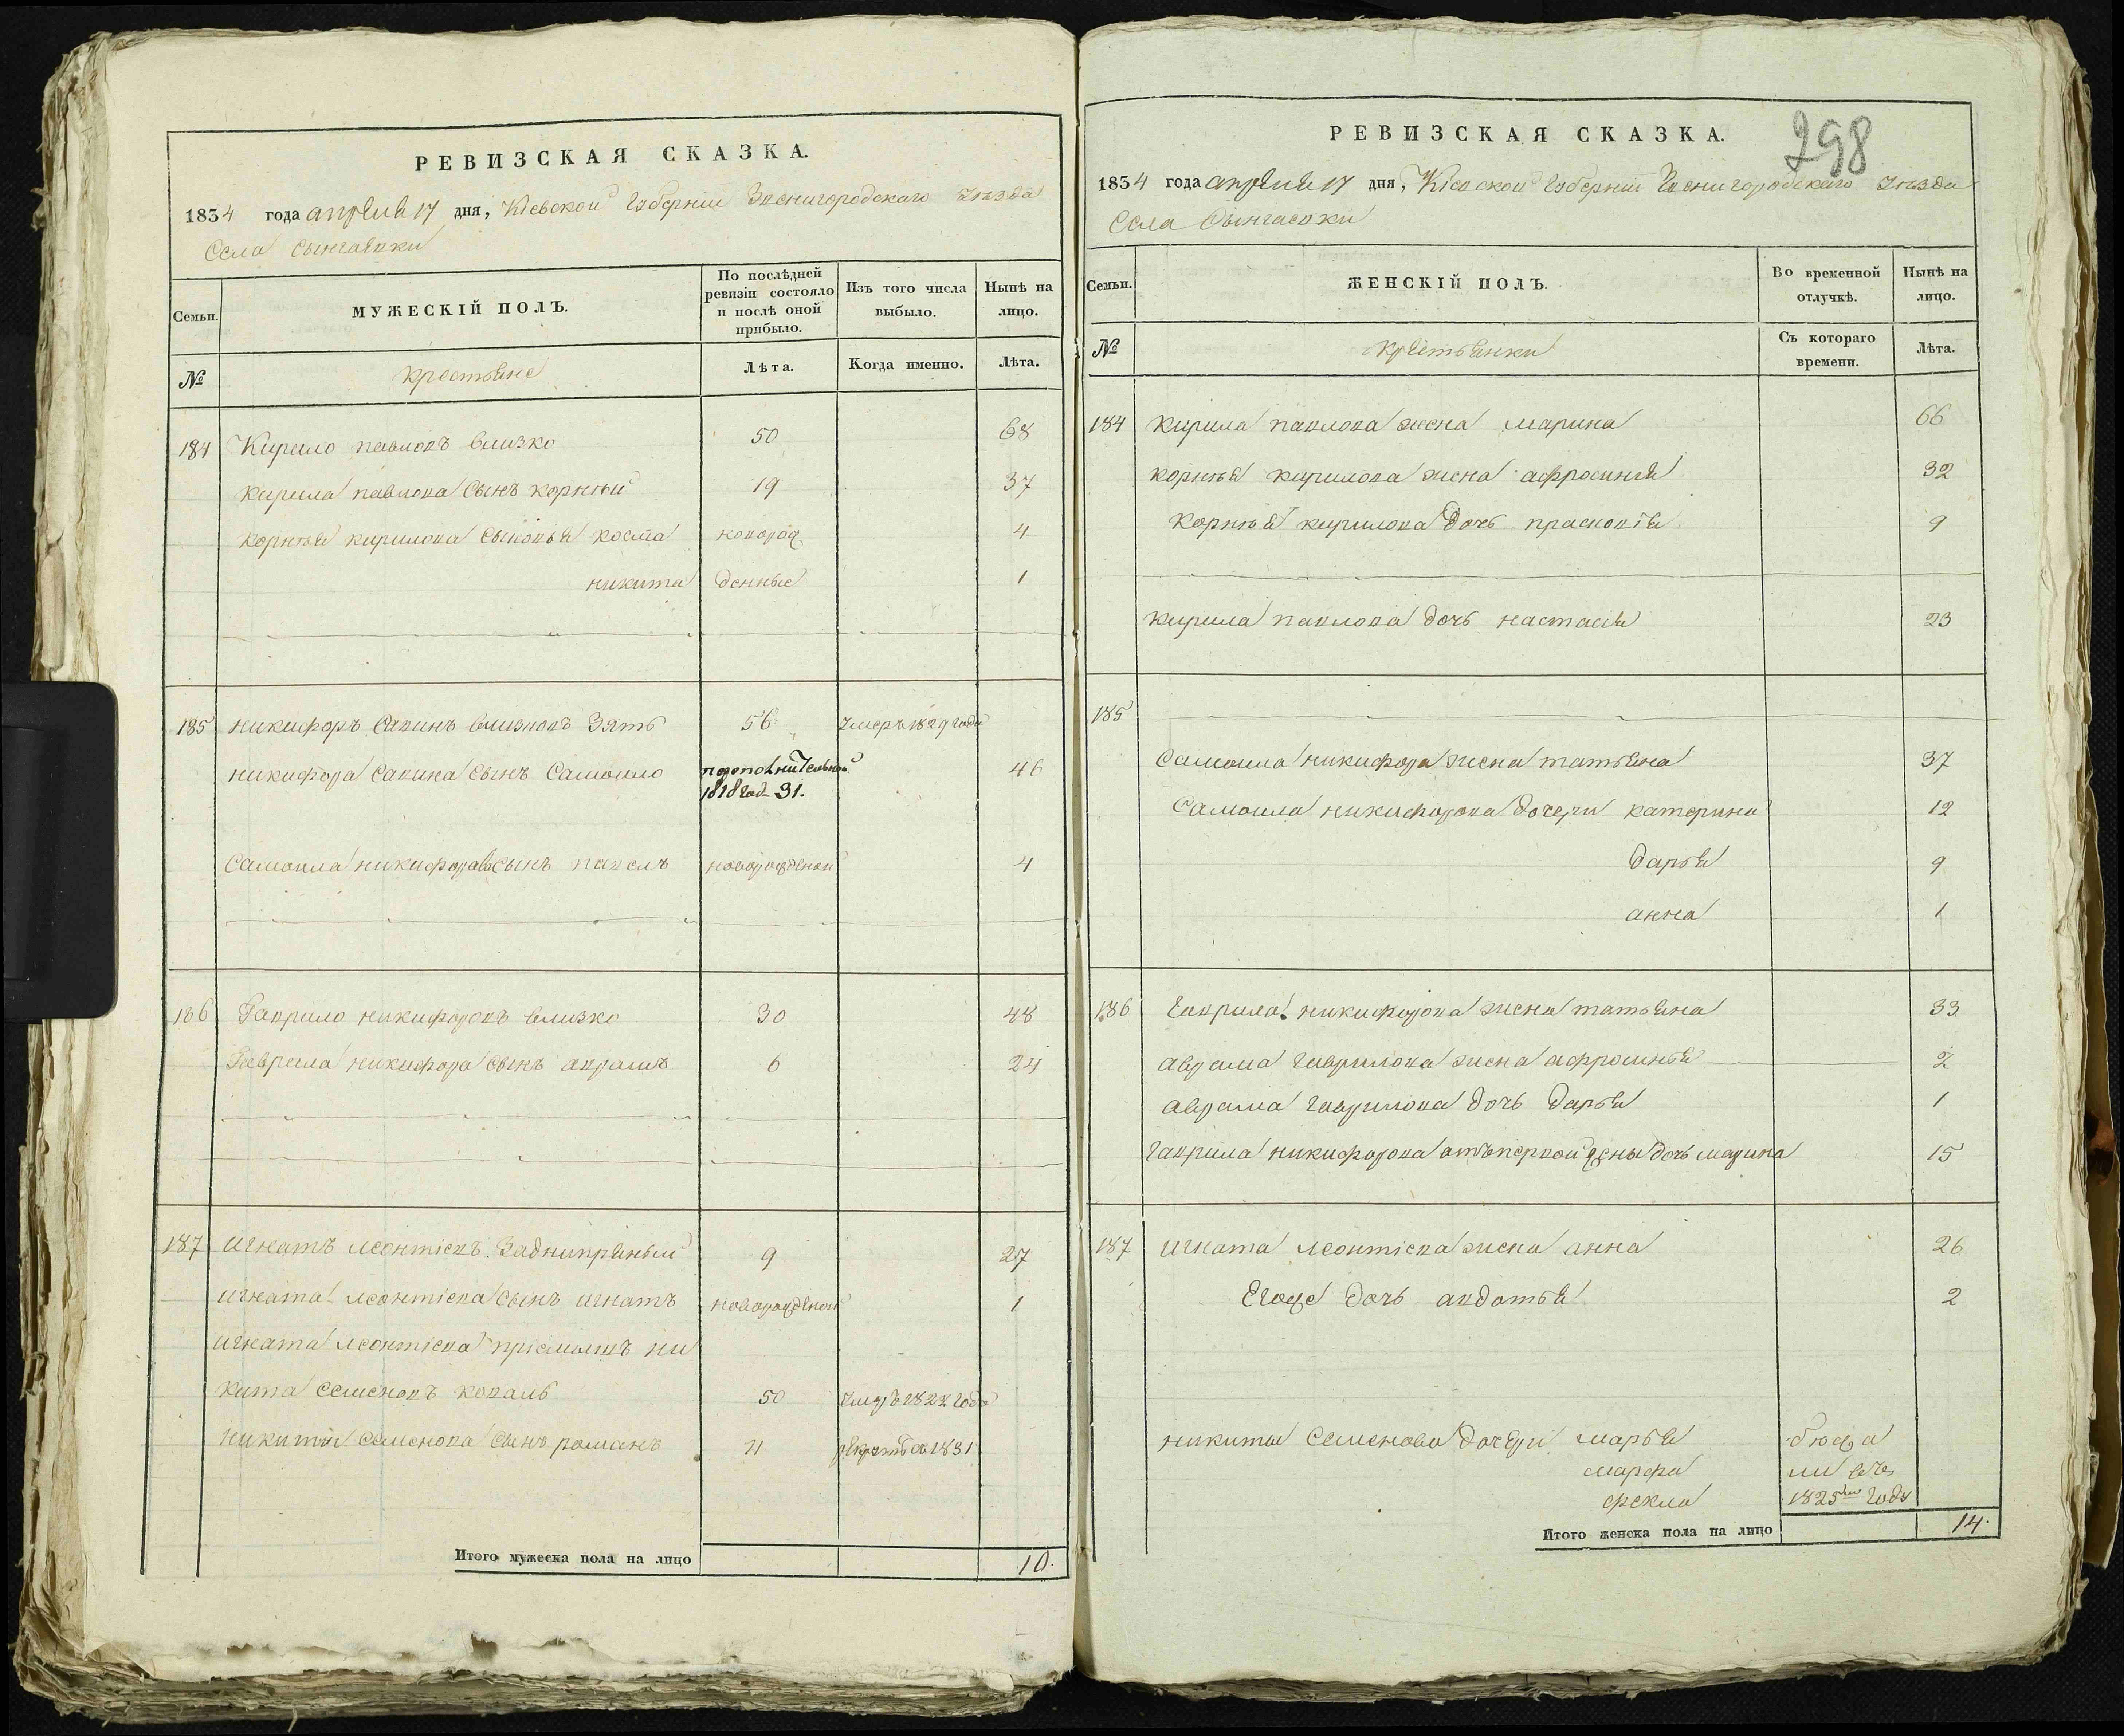 РЕВИЗСКАЯ СКАЗКА.
1834 года апреля 17 дня, Кіевской Губерніи Звенигородскаго уѣзда
Села
Семьи.
МУЖЕСКІЙ ПОЛЪ.
По послѣдней ревизіи состояло и послѣ оной прибыло.
Изъ того числа выбыло.
Нынѣ на лицо.
№
крестьяне
Лѣта.
Когда именно.
Лѣта.
184 Кирило павловъ близко 50 68
кирила павлова сынъ корнѣй 19 37
корнѣя кирилова сыновья косма новорож 4
никита денные 1
185 никифоръ савинъ близковъ зять 56 умеръ 1829 года
никифора савина сынъ Самоило 46
1818 год 31.
Самоила никифорова сынъ павелъ новорожденой 4
186 Гаврило никифоровъ близко 30 48
Гаврила никифора сынъ аврамъ 6 24
187 игнатъ леонтіевъ Заднипряный 9 27
игната леонтіева сынъ игнатъ новорожденой 1
игната леонтіева пріемышъ ни
кита семеновъ коваль 50
никиты семенова сынъ романъ 21 1831
Итого мужеска пола на лицо 10.
298
РЕВИЗСКАЯ СКАЗКА.
1834 года апреля 17 дня, Кіевской Губерніи Звенигородскаго уѣзда
Села
Семьи.
ЖЕНСКІЙ ПОЛЪ.
Во временной отлучкѣ.
Нынѣ на лицо.
№
крестьянки
Съ котораго времени.
Лѣта.
184 кирила павлова жена марина 66
корнѣя кирилова жена афросинія 32
корнѣя кирилова дочь прасковія 9
кирила павлова дочь настасія 23
185
Самоила никифора жена татьяна 37
Самоила никифорова дочери катерина 12
дарья 9
анна 1
186 гаврила никифорова жена татьяна 33
аврама гаврилова жена афросинья 2
аврама гаврилова дочь дарья 1
гаврила никифорова отъ первой жены дочь марина 15
187 игната леонтіева жена анна 26
Егоже дочь авдотья 2
никиты семенова дочери марья
марфа
фекла 1825 году
Итого женска пола на лицо 14.